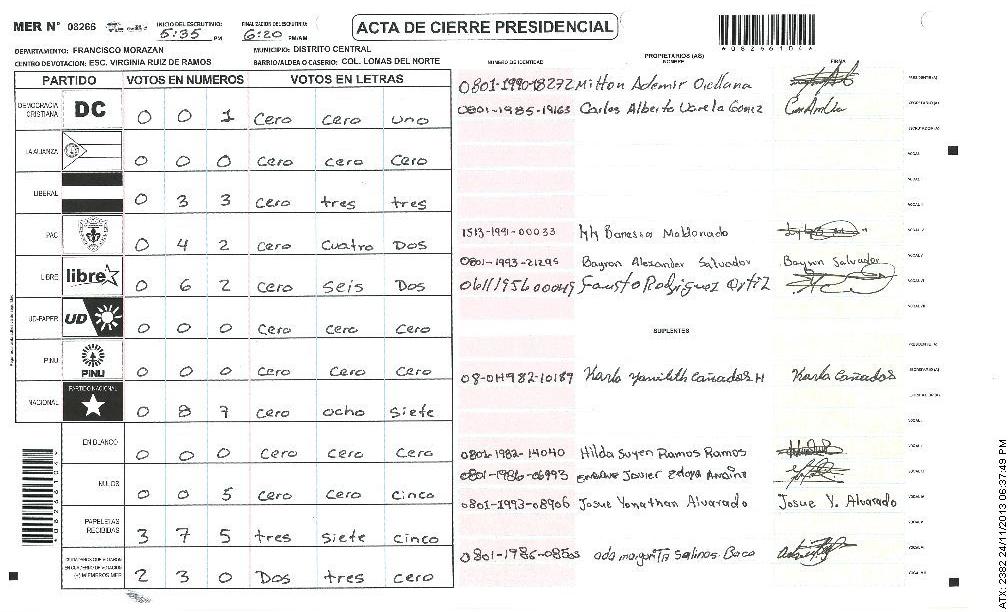 MER N° 08266 INICIO DEL ESCRUTINIO: 5:35 PM FINALIZACION DEL ESCRUTINIO: 6:20 PM/AM ACTA DE CIERRE PRESIDENCIAL
DEPARTAMENTO: FRANCISCO MORAZAN MUNICIPIO: DISTRITO CENTRAL
CENTRO DE VOTACION: ESC. VIRGINIA RUIZ DE RAMOS BARRIO/ALDEA O CASERIO: COL. LOMAS DEL NORTE
NUMERO DE IDENTIDAD PROPIETARIOS (AS) NOMBRE FIRMA
PARTIDO VOTOS EN NUMEROS VOTOS EN LETRAS
DEMOCRACIA CRISTIANA DC 0 0 1 Cero Cero Uno
LA ALIANZA 0 0 0 Cero Cero Cero
LIBERAL 0 3 3 Cero tres tres
PAC 0 4 2 Cero Cuatro Dos
LIBRE libre 0 6 2 Cero Seis Dos
UD-FAPER UD 0 0 0 Cero Cero Cero
PINU PINU 0 0 0 Cero Cero Cero
NACIONAL PARTIDO NACIONAL 0 8 7 Cero ocho Siete
EN BLANCO 0 0 0 Cero Cero Cero
NULOS 0 0 5 Cero Cero Cinco
PAPELETAS RECIBIDAS 3 7 5 tres siete cinco
CIUDADANOS QUE VOTARON EN CUADERNO DE VOTACION (+) MIEMBROS MER 2 3 0 Dos tres cero
0801-1990-18272 Milton Ademir Orellana PRESIDENTE (A)
0801-1985-19163 Carlos Alberto Varela Gomez SECRETARIO (A)
1513-1991-00033 Banessa Maldonado
0801-1993-21295 Bayron Alexander Salvador Bayron Salvador
0611195600049 Fausto Rodriguez Ortiz
SUPLENTES
Karla Yamileth Cañados H Karla Cañados
0801-1982-14040 Hilda Suyen Ramos Ramos
0801-1986-06993 Javier
0801-1993-08906 Josue Yonathan Alvarado Josue Y. Alvarado
ada margarita Salinas Baca
ATX: 2382 24/11/2013 06:37:49 PM